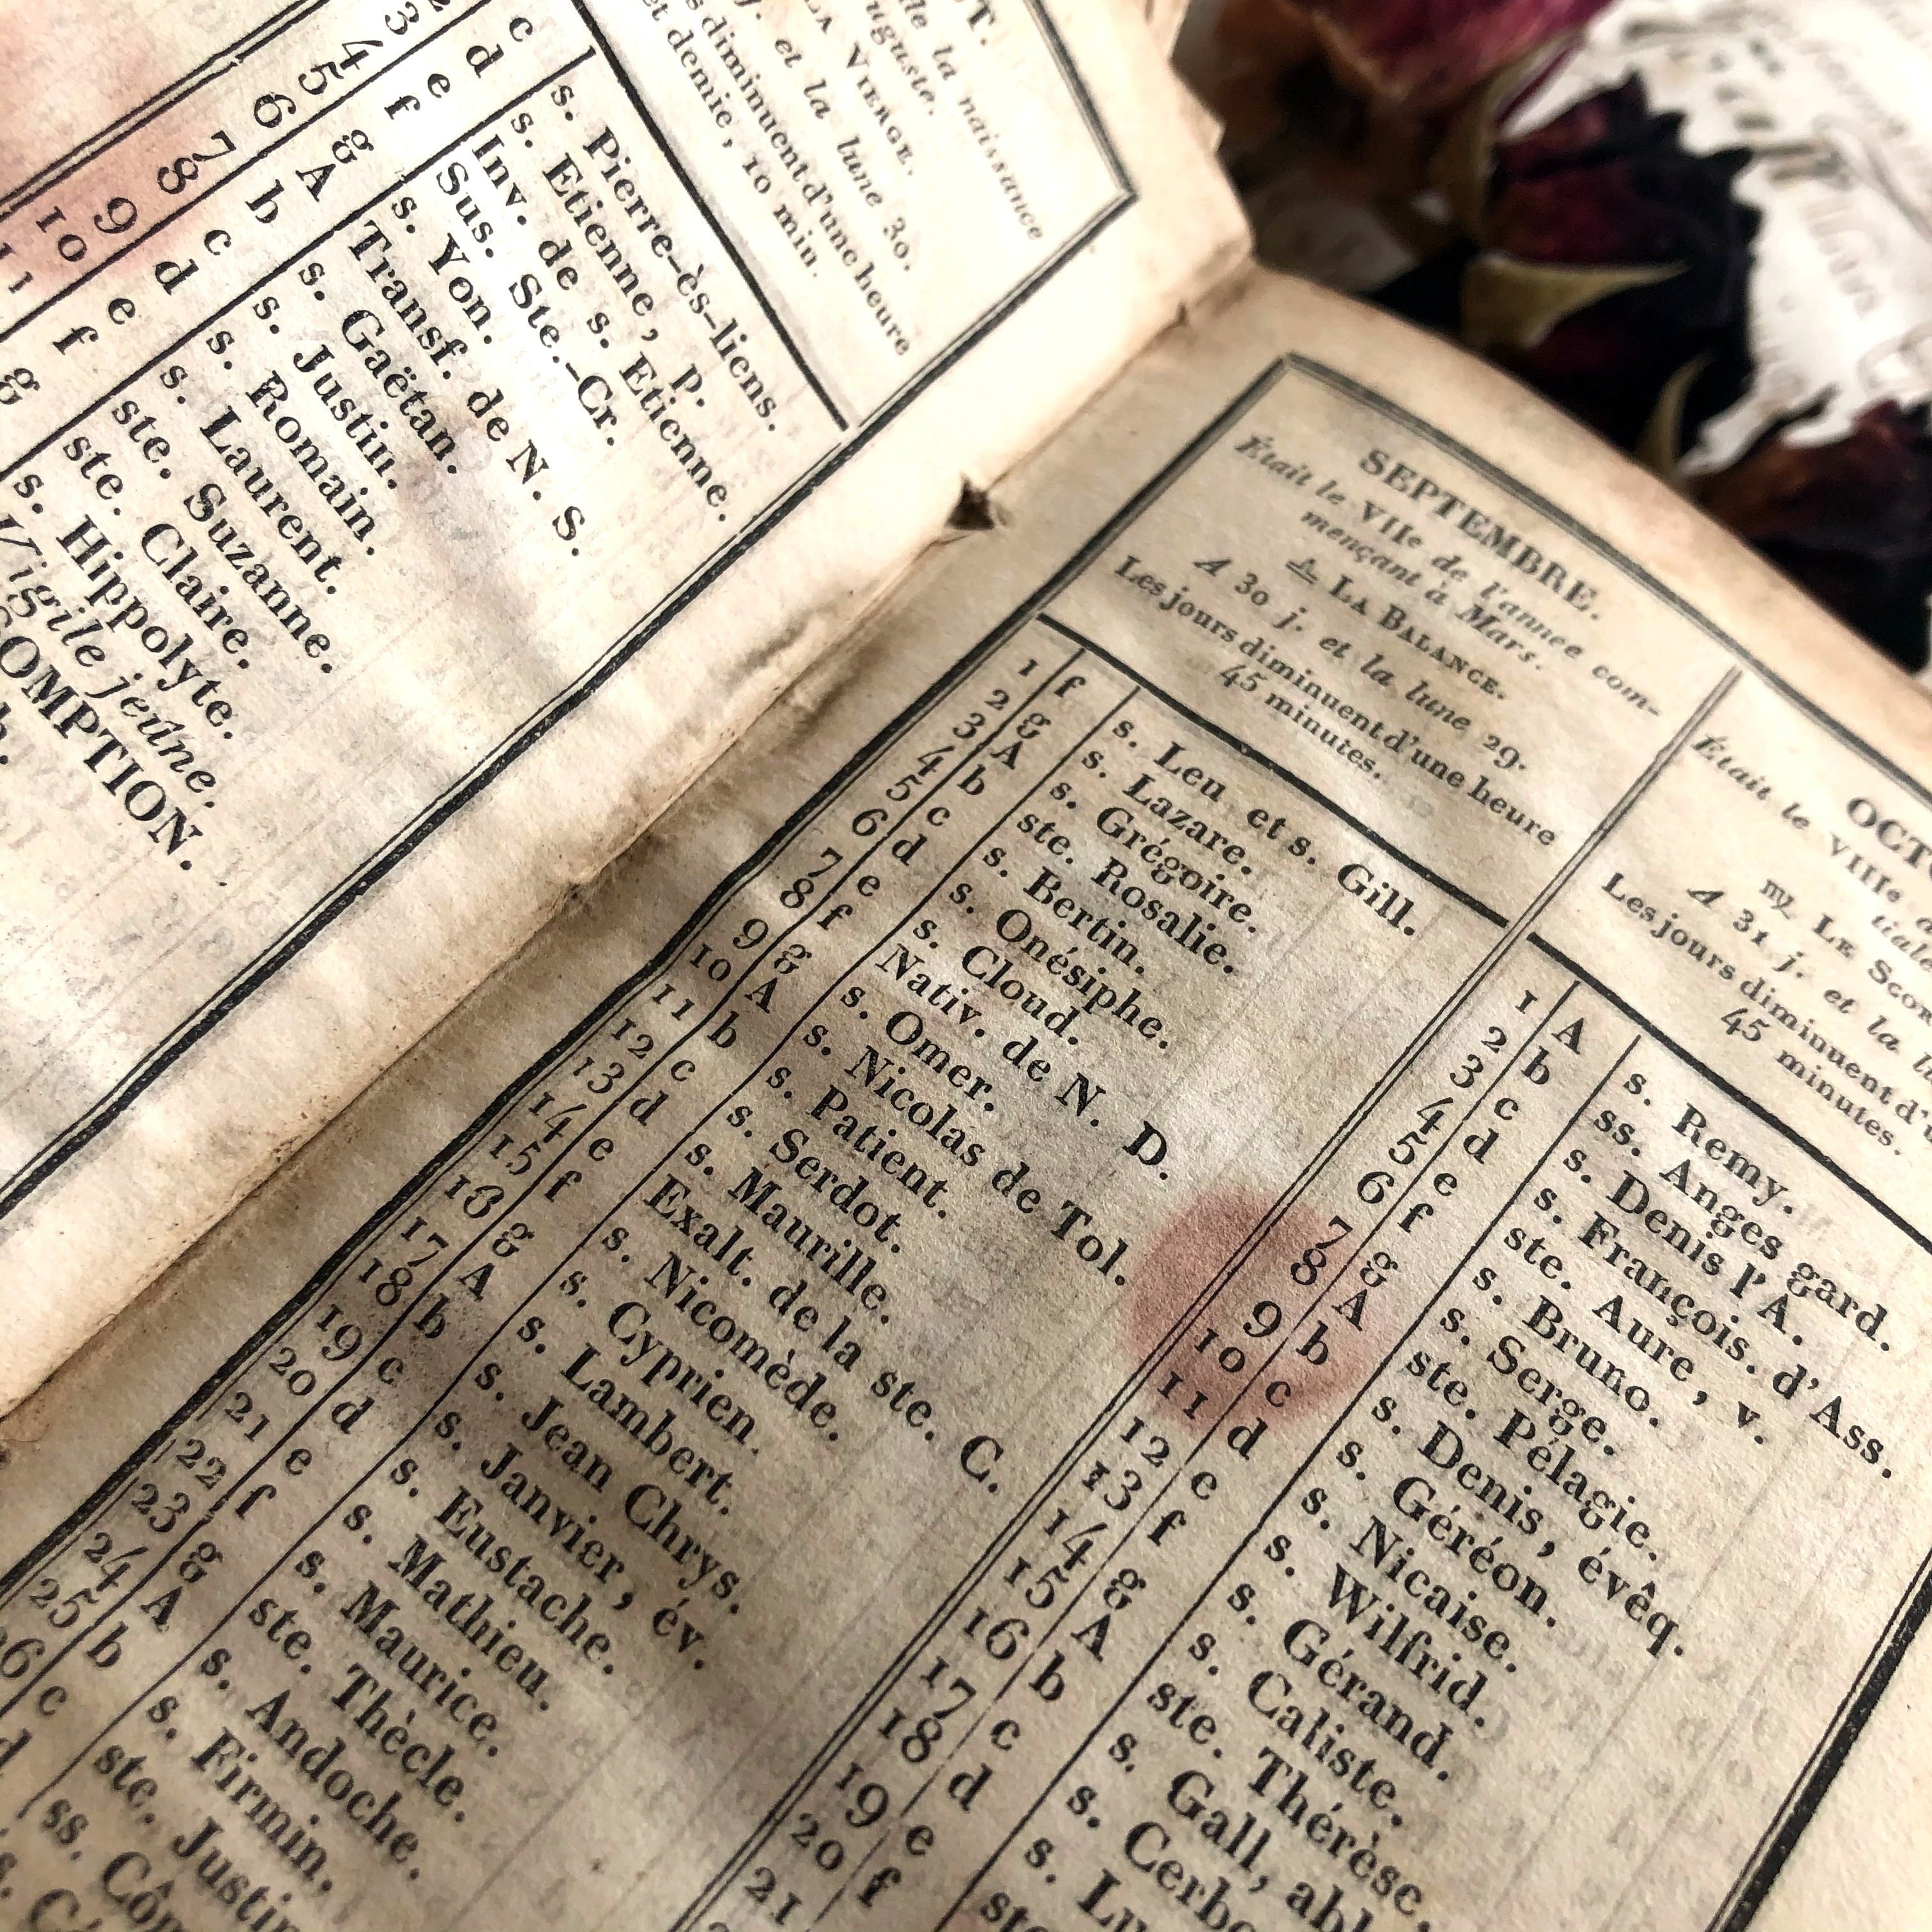 T.
de la naissance
uguste.
LA VIERGE.
j. et la lune 30.
s diminuent d'une heure
et demie, 10 min.
c s. Pierre-ès-liens.
d s. Etienne, p.
3 e Inv. de s. Etienne.
4 f Sus. Ste.-Cr.
5 g s. Yon.
6 A Transf. de N. S.
7 b s. Gaëtan.
8 c s. Justin.
9 d s. Romain.
10 e s. Laurent.
11 f ste. Suzanne.
g ste. Claire.
s. Hippolyte.
Vigile jeûne.
SOMPTION.
SEPTEMBRE.
Était le VIIe de l'annee com-
mençant à Mars.
♎ LA BALANCE.
A 30 j. et la lune 29.
Les jours diminuent d'une heure
45 minutes.
1 f s. Leu et s. Gill.
2 g s. Lazare.
3 A s. Grégoire.
4 b ste. Rosalie.
5 c s. Bertin.
6 d s. Onésiphe.
7 e s. Cloud.
8 f Nativ. de N. D.
9 g s. Omer.
10 A s. Nicolas de Tol.
11 b s. Patient.
12 c s. Serdot.
13 d s. Maurille.
14 e Exalt. de la ste. C.
15 f s. Nicomède.
16 g s. Cyprien.
17 A s. Lambert.
18 b s. Jean Chrys.
19 c s. Janvier, év.
20 d s. Eustache.
21 e s. Mathieu.
22 f s. Maurice.
23 g ste. Thècle.
24 A s. Andoche.
25 b s. Firmin,
26 c ste. Justin
d ss. Côm
OCT
Était le VIIIe
♏ LE SCOR
A 31 j. et la l
Les jours diminuent d'u
45 minutes.
1 A s. Remy.
2 b ss. Anges gard.
3 c s. Denis l'A.
4 d s. François. d'Ass.
5 e ste. Aure, v.
6 f s. Bruno.
7 g s. Serge.
8 A ste. Pélagie.
9 b s. Denis, évêq.
10 c s. Géréon.
11 d s. Nicaise.
12 e s. Wilfrid.
13 f s. Gérand.
14 g s. Caliste.
15 A ste. Thérèse.
16 b s. Gall, ab
17 c s. Cerbo
18 d s. Lu
19 e ste
20 f
21